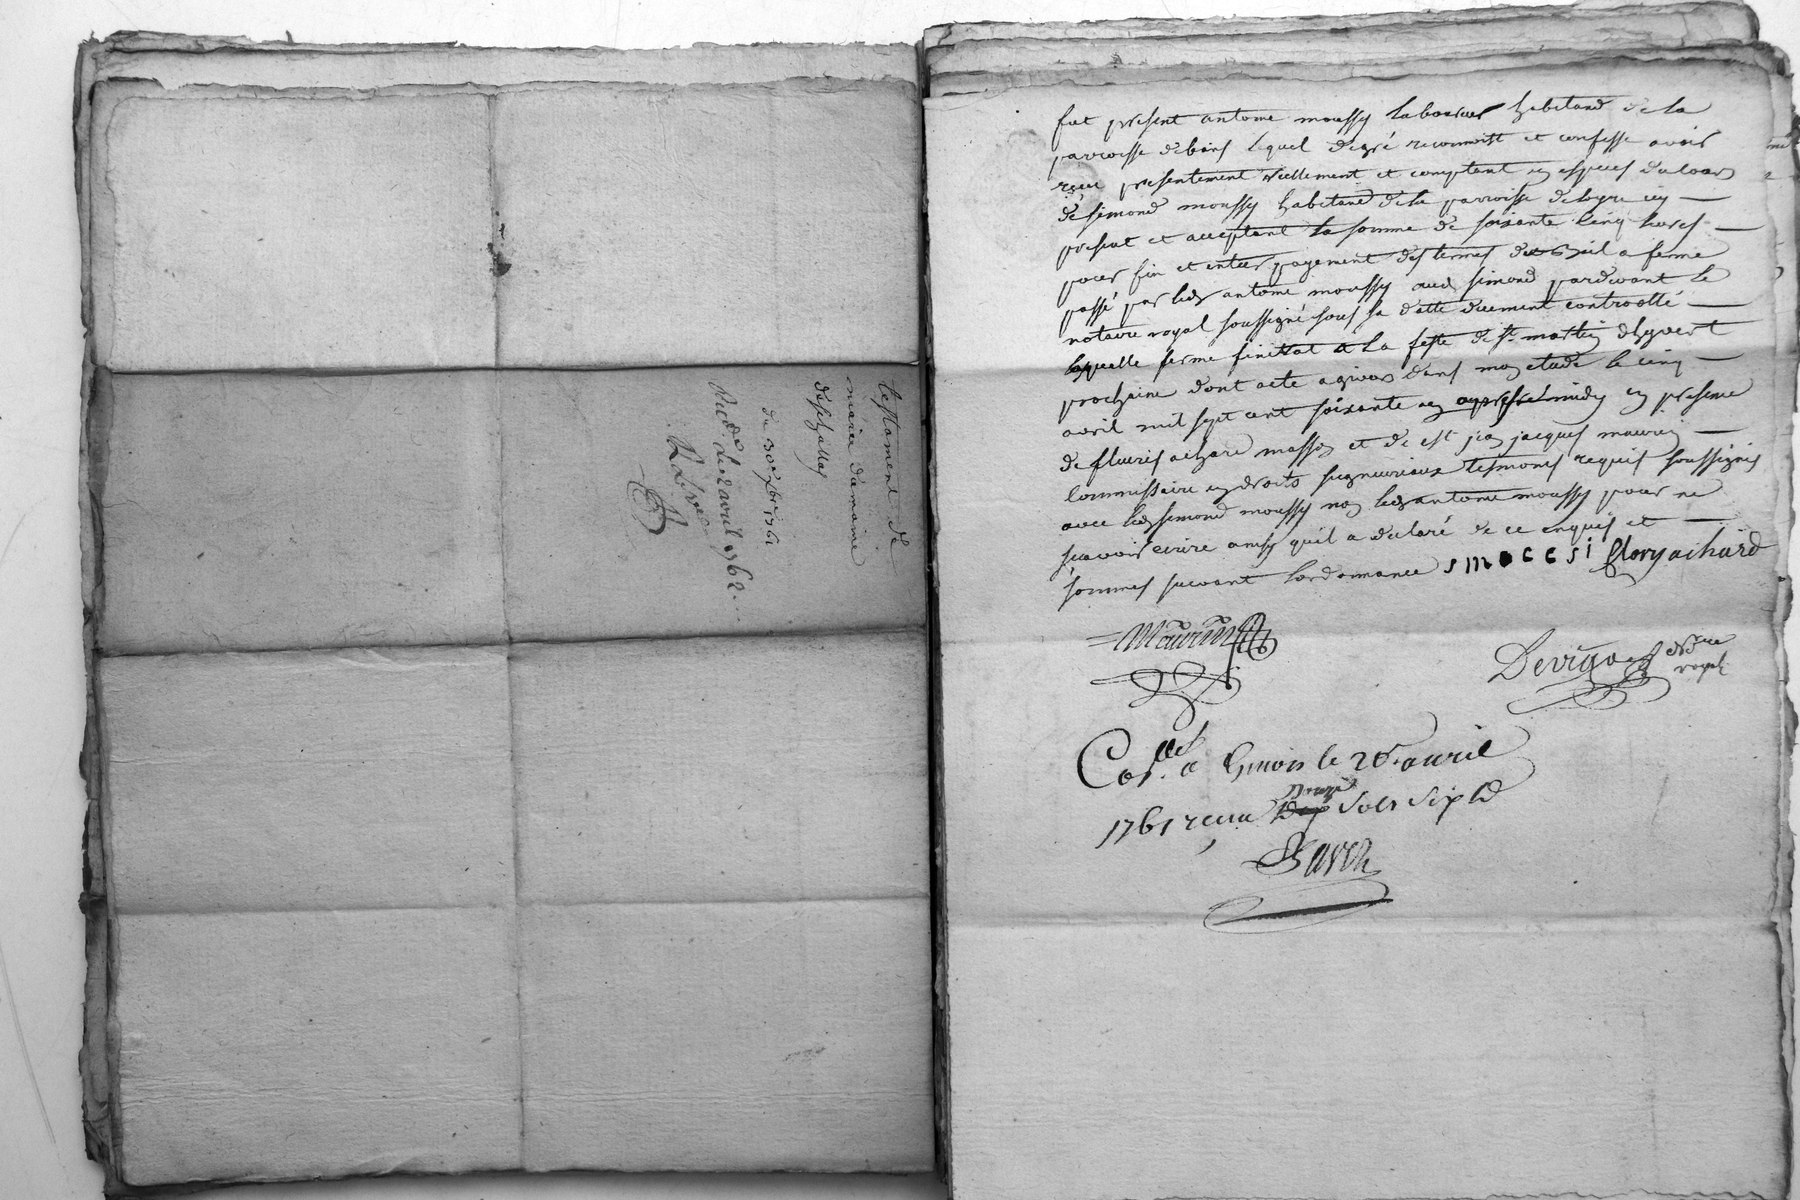 testament de
marie damaine
deschallas
du 30e 7bre 1761
avril 1762
fut present antoine moussy laboureur habitand de la
parroisse debans lequel degré reconnoist et confesse avoir
reçu presentement réellement et comptant en especes du cours
de simond moussy habitand de la parroisse deloyre icy
present et acceptant la somme de soixante cinq livres
pour fin et entier payement des termes du bail a ferme
passé par ledt antoine moussy aud simond pardevant le
notaire royal soussigné sous sa datte duement controollé
laquelle ferme finittat a la feste de st martin dhyvert
prochaine dont acte a givors dans mon etude le cinq
avril mil sept cent soixante un apres midy en presence
de fleuris achard masson et de sr jean jacques maurin
commissaire en droits seigneuriaux tesmoins requis soussignés
avec ledt simond moussy non ledt antoine moussy pour ne
scavoir ecrire ainsy quil a declaré de ce enquis et
sommes suivant lordonnance s m o c c s i flory achard
Maurin
Devigne nre
royal
Collé a Givors le 20e avril
1761 recu douze sols six d